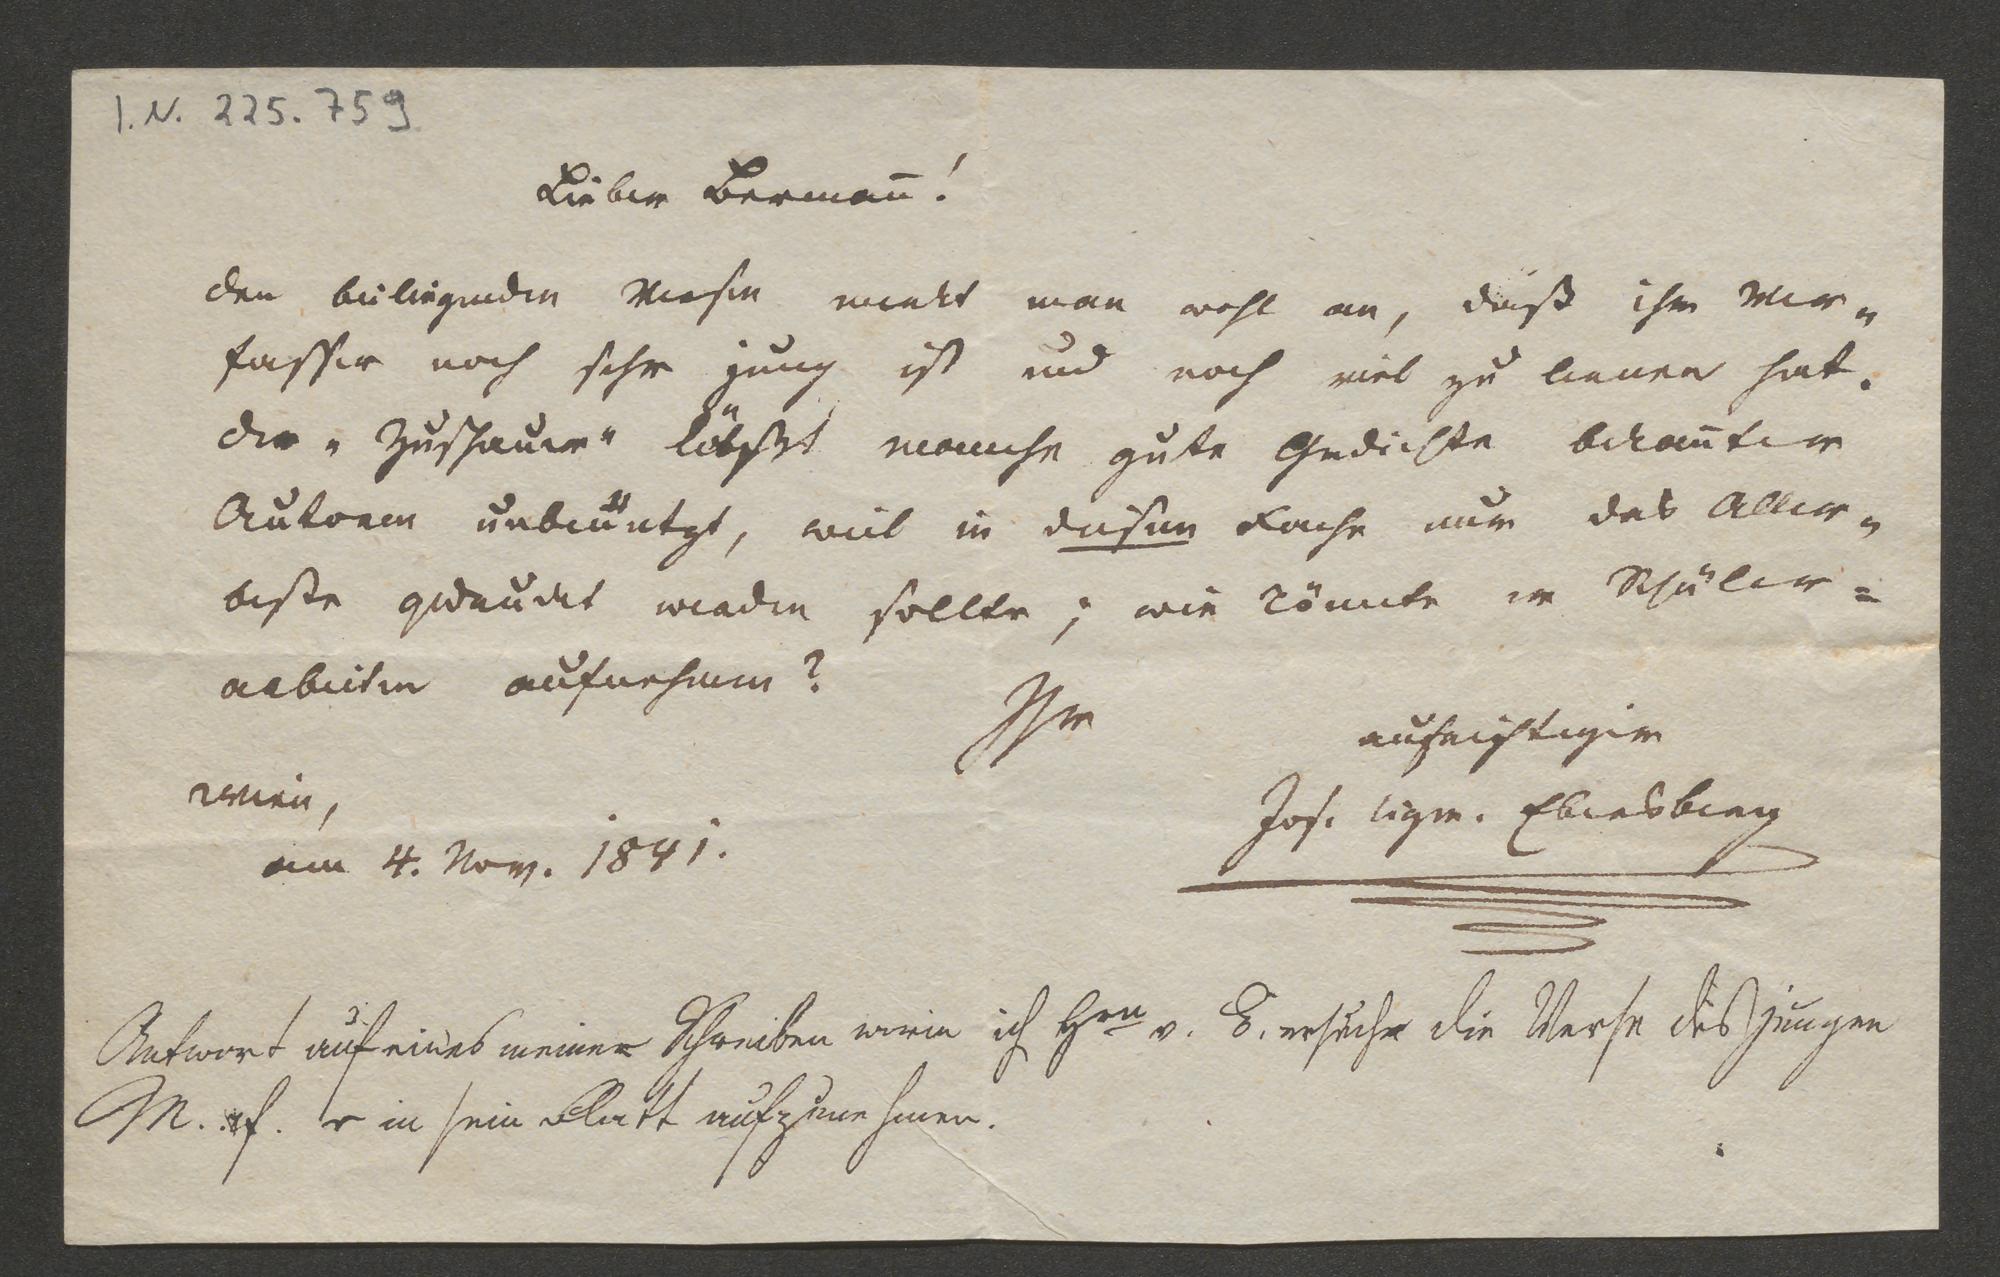 I. N. 225.759
Lieber Bermañ!
den beiliegenden Versen merkt man wohl an, daß ihr Ver„
fasser noch sehr jung ist und noch viel zu lernen hat.
der „Zuschauer“ läßt manche gute Gedichte bekañter
Autoren unbenützt, weil in diesem Fache nur das Aller„
beste gedruckt werden sollte; wie könnte er Schüler=
arbeiten aufnehmen?
Ihr
aufrichtiger
Jos. Sigm. Ebersberg
Wien,
am 4. Nov. 1841.
Antwort auf eines meiner Schreiben worin ich Hrn v. E. ersuche die Verse des jungen
M. r in sein Blatt aufzunehmen.